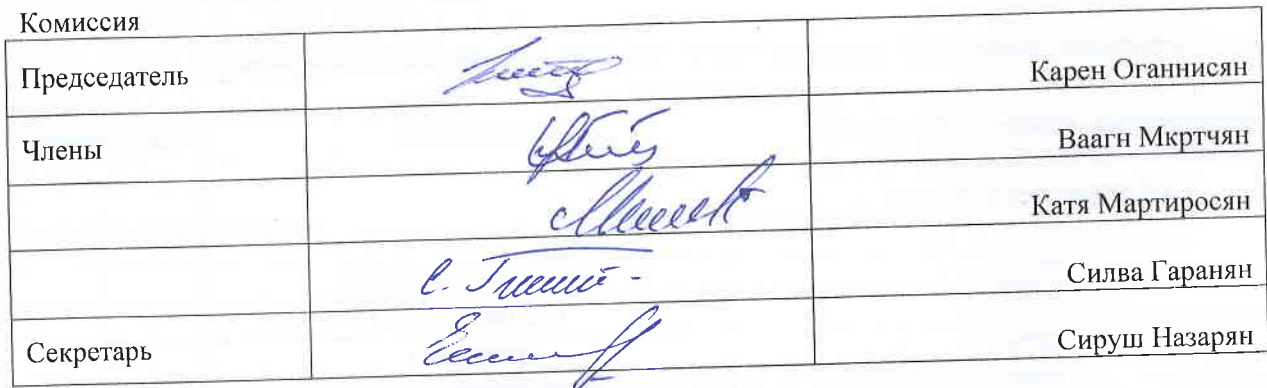 Комиссия
Председатель Карен Оганнисян
Члены Ваагн Мкртчян
Катя Мартиросян
Силва Гаранян
Секретарь Сируш Назарян